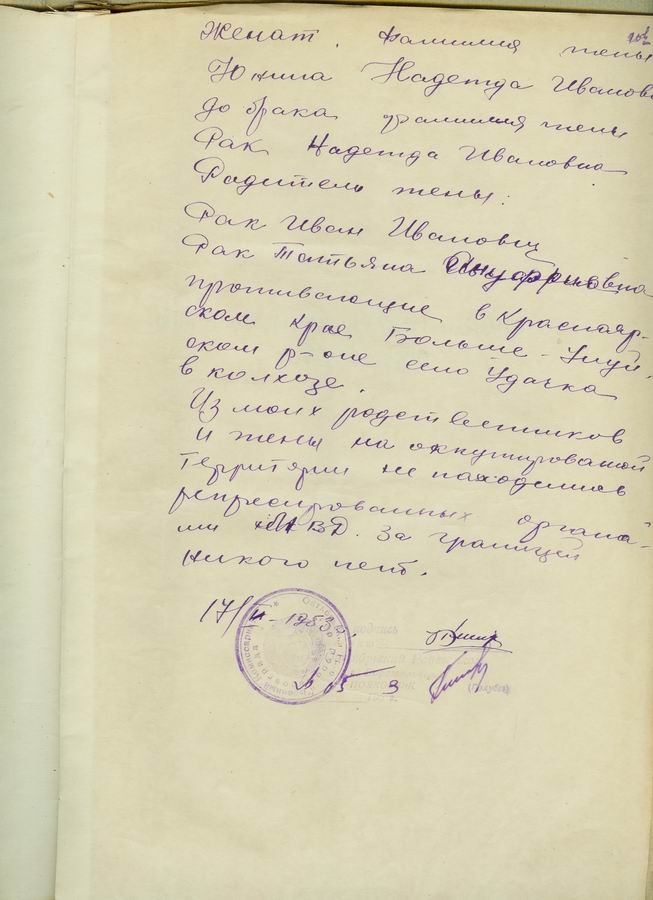 Женат. Фамилия жены
Юнина Надежда Иванов
до брака фамилия жены
Фак Надежда Ивановна
Родители жены:
Фак Иван Иванович
Фак Татьяна Ануфриевна
проживающие в Краснояр-
ском крае Больше-Улуй
ском р-оне село Удачка
в колхозе.
Из моих родственников
и жены на оккупированой
территории не находились
репресированных органа-
ми НКВД. За границей
никого нет.
17/ - 1953
подпись
26 05 3